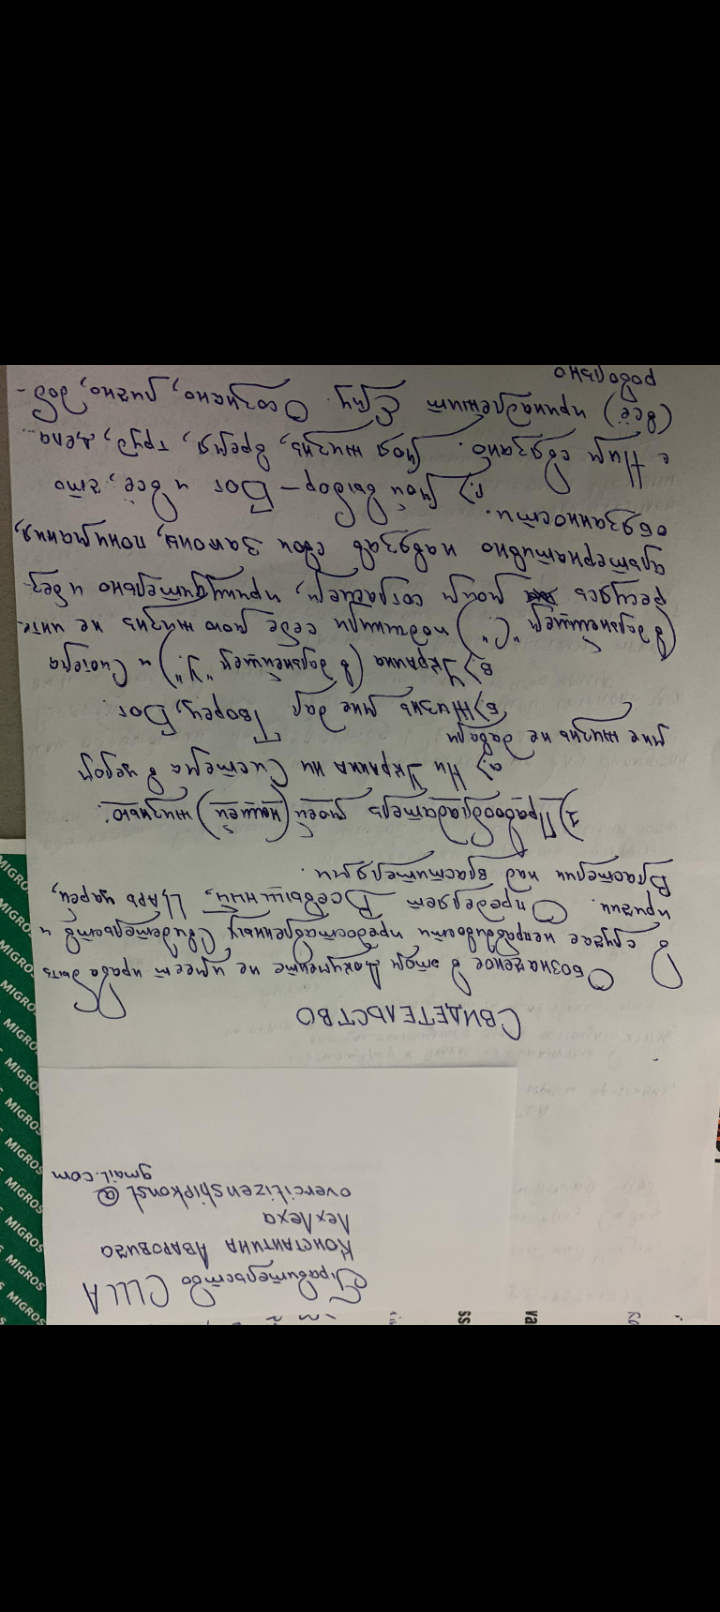 Правительство США
Константина Аваровиза
ЛехЛеха
overcitizenshipkonst@
gmail.com
СВИДЕТЕЛЬСТВО
Обозначеное в этом Документе не имеет права быть
в случае неправдивости предоставленных Свидетельств и
призми. Определяет Всевышний, Царь царей,
Властелин над властителями.
1) Правообладатель моей (нашей) жизнью.
а) Ни Украина ни Система в целом
мне жизнь не давали
б) Жизнь мне дал Творец, Бог.
в) Украина (в дальнейшем "У.") и Система
(в дальнейшем "С.") подчинили себе мою жизнь не инте-
ресуясь моим согласием, принудительно и без-
альтернативно навязав свои законы, понимания,
обязанности.
г) Мой выбор – Бог и всё, что
с Ним связано. Моя жизнь, время, труд, дела...
(всё) принадлежит Ему. Осознано, лично, доб-
ровольно
MIGROS
MIGROS
MIGROS
MIGROS
MIGROS
MIGROS
MIGROS
MIGROS